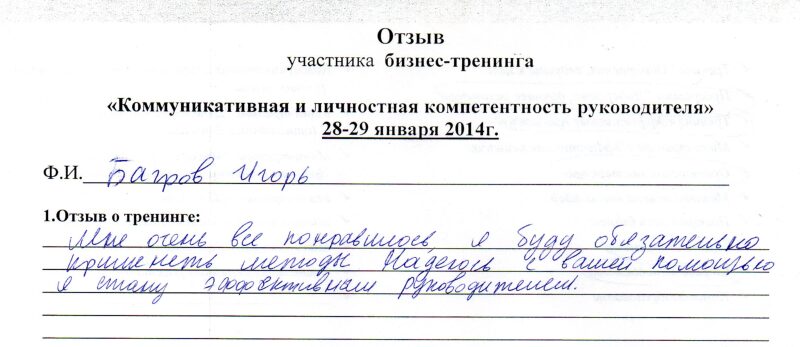 Отзыв
участника бизнес-тренинга
«Коммуникативная и личностная компетентность руководителя»
28-29 января 2014г.
Ф.И. Багров Игорь
1.Отзыв о тренинге:
Мне очень все понравилось, я буду обязательно
применять методы Надеюсь с вашей помощью
я стану эффективным руководителем.